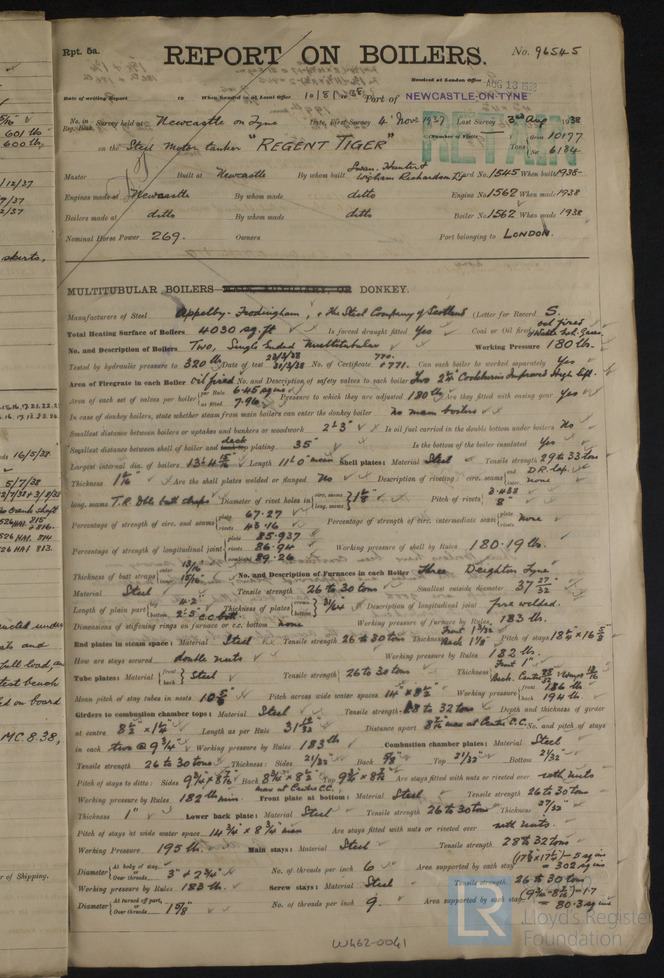 Rpt. 5a.
REPORT ON BOILERS.
No. 96545
Received at London Office AUG 13 1938
Date of writing Report 19 When handed in at Local Office 10/8/ 1938 Port of NEWCASTLE-ON-TYNE
No. in Reg. Book. Survey held at Newcastle on Tyne Date, First Survey 4 Novr 1937 Last Survey 3rd Aug 1938
RETAIN
(Number of Visits
on the Steel Motor tanker "REGENT TIGER" Tons Gross 10177 Net 6184
Master Built at Newcastle By whom built Swan, Hunter & Wigham Richardson Ltd Yard No. 1545 When built 1938
Engines made at Newcastle By whom made ditto Engine No. 1562 When made 1938
Boilers made at ditto By whom made ditto Boiler No. 1562 When made 1938
Nominal Horse Power 269. Owners Port belonging to LONDON.
MULTITUBULAR BOILERS MAIN, AUXILIARY, OR DONKEY.
Manufacturers of Steel Appelby-Frodingham, & The Steel Company of Scotland (Letter for Record S.
Total Heating Surface of Boilers 4030 sq.ft Is forced draught fitted Yes Coal or Oil fired oil fired
No. and Description of Boilers Two, Single Ended Multitubular Working Pressure 180 lb.
Tested by hydraulic pressure to 320 lb Date of test 23/3/38 31/3/38 No. of Certificate 770. 771. Can each boiler be worked separately Yes
Area of Firegrate in each Boiler oil fired No. and Description of safety valves to each boiler Two 2¾" Cockburn's Improved High Lift.
Area of each set of valves per boiler per Rule 6.45 sq ins as fitted 7.96 Pressure to which they are adjusted 180 lb Are they fitted with easing gear Yes
In case of donkey boilers, state whether steam from main boilers can enter the donkey boiler no main boilers
Smallest distance between boilers or uptakes and bunkers or woodwork 2'-3" Is oil fuel carried in the double bottom under boilers No
Smallest distance between shell of boiler and deck plating 35" Is the bottom of the boiler insulated Yes
Largest internal dia. of boilers Length 11'-0" mean Shell plates: Material Steel Tensile strength 29 to 33 tons
Thickness Are the shell plates welded or flanged No Description of riveting: circ. seams end D.R. lap. inter. none
long. seams T.R. Dble butt straps Diameter of rivet holes in circ. seams long. seams Pitch of rivets 3.438 8"
Percentage of strength of circ. end seams plate 67.27 rivets 43.16 Percentage of strength of circ. intermediate seam plate rivets none
Percentage of strength of longitudinal joint plate 85.937 rivets 86.94 combined 89.26 Working pressure of shell by Rules 180.19 lb.
Thickness of butt straps outer 13/16 inner 15/16" No. and Description of Furnaces in each Boiler Three Deighton Type
Material Steel Tensile strength 26 to 30 tons Smallest outside diameter 37 27/32
Length of plain part top bottom Thickness of plates crown bottom 31/64" Description of longitudinal joint fire welded.
Dimensions of stiffening rings on furnace or c.c. bottom none Working pressure of furnace by Rules 183 lb.
End plates in steam space: Material Steel Tensile strength 26 to 30 tons Thickness Front 1 3/32 Back 1⅛" Pitch of stays
How are stays secured double nuts Working pressure by Rules 182 lb.
Tube plates: Material front back Steel Tensile strength 26 to 30 tons Thickness Front 1"
Mean pitch of stay tubes in nests Pitch across wide water spaces 14" × 8½" Working pressure front 186 lb back 194 lb.
Girders to combustion chamber tops: Material Steel Tensile strength 28 to 32 tons Depth and thickness of girder
at centre 8½" × 1¼" Length as per Rule Distance apart 8¾" max at Centre C.C. No. and pitch of stays
in each two @ 9¾" Working pressure by Rules 183 lb Combustion chamber plates: Material Steel
Tensile strength 26 to 30 tons Thickness: Sides 21/32" Back ⅝" Top 21/32" Bottom 21/32"
Pitch of stays to ditto: Sides 9¾" × 8½" Back Top Are stays fitted with nuts or riveted over with nuts
max at Centre C.C.
Working pressure by Rules 182 lb min Front plate at bottom: Material Steel Tensile strength 26 to 30 tons
Thickness 1" Lower back plate: Material Steel Tensile strength 26 to 30 tons Thickness 27/32"
Pitch of stays at wide water space 14¾" × 8¾" max Are stays fitted with nuts or riveted over with nuts.
Working Pressure 195 lb. Main stays: Material Steel Tensile strength 28 to 32 tons
Diameter At body of stay, or Over threads 3" & 2¾" No. of threads per inch 6 Area supported by each stay = 302 sq ins
Working pressure by Rules 183 lb Screw stays: Material Steel Tensile strength 26 to 30 tons
Diameter At turned off part, or Over threads 1⅝" No. of threads per inch 9. Area supported by each stay = 80.3 sq ins
W462-0041
LR Lloyd's Register Foundation